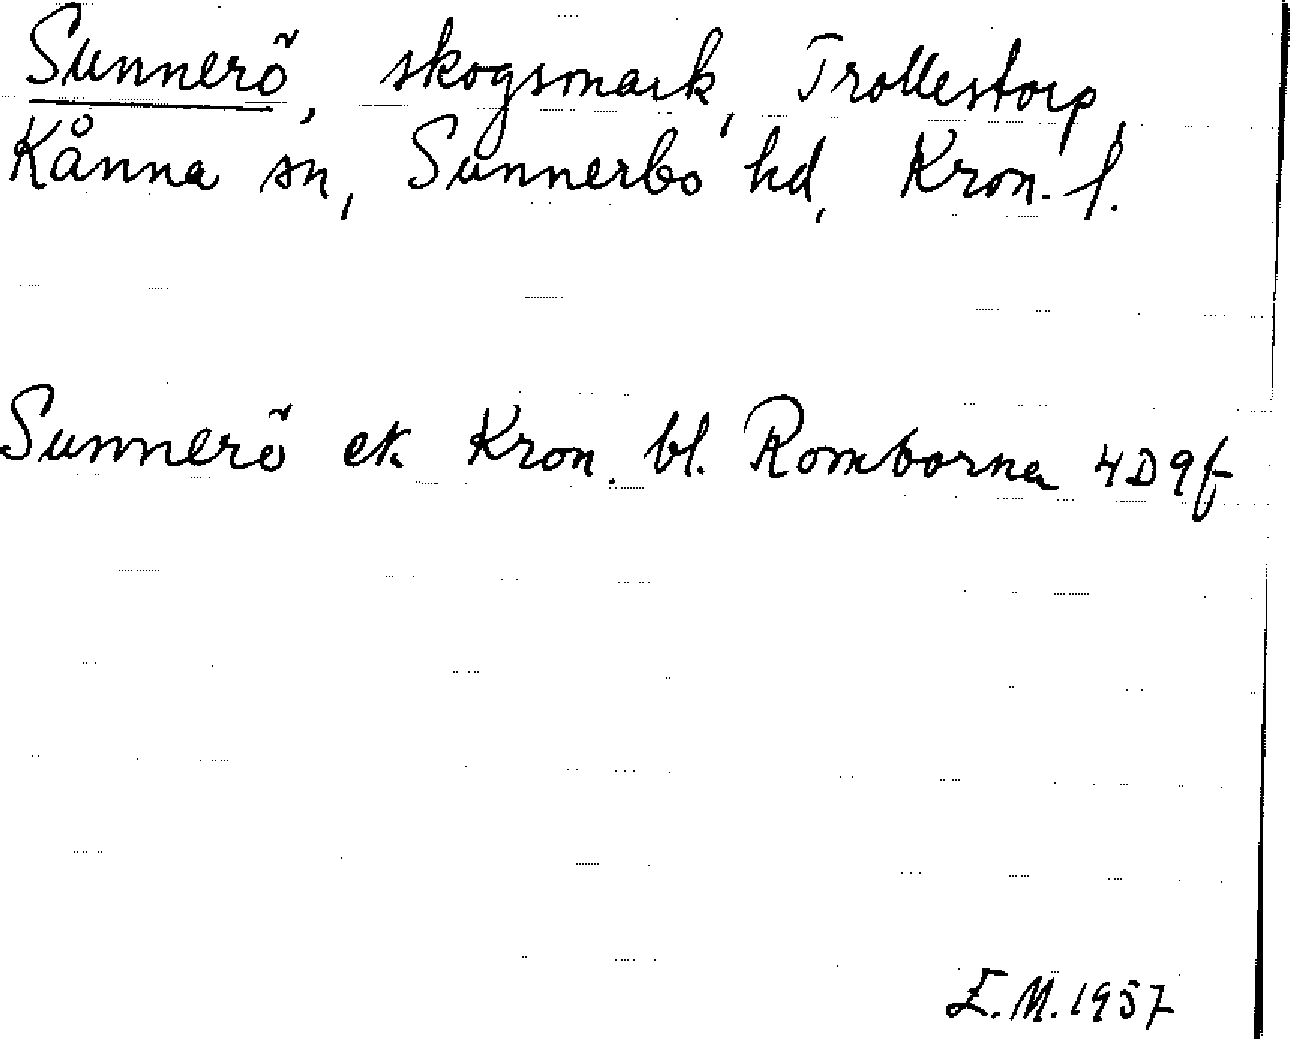 Sunnerö, skogsmark, Trollestorp,
Kånna sn, Sunnerbo hd, Kron. l.
Sunnerö ek Kron. bl. Romborna 4D9f
E.M. 1957